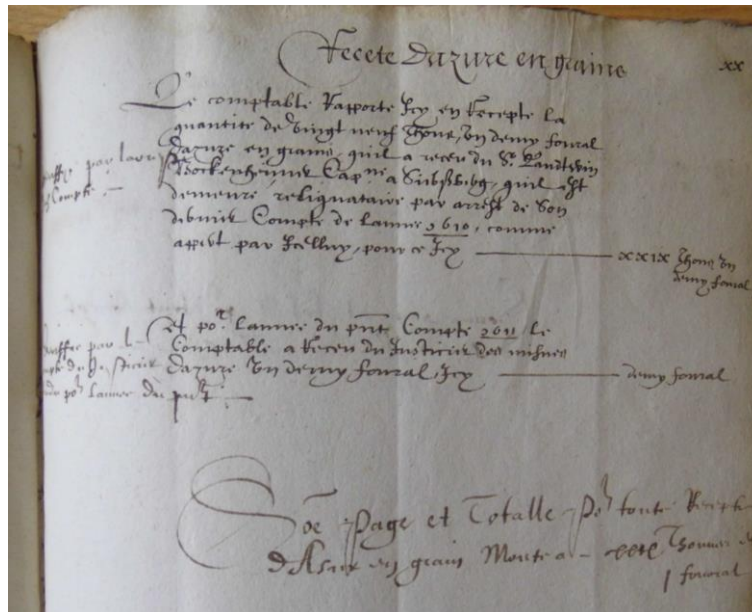 Recete dazure en graine
xx
Le comptable Rapporte Icy en Recepte la
quantite de vingt neuf thone, vn demy foural
dazure en graine, quil a receu du Sr. Landtwin
Bockenheimer Cap.ne a quil est
demeure, reliquataire par arrest de son
dernier Compte de lannee 1610, comme
apert par Icelluy, pour ce Icy
xxix thone vn
demy foural
par
Compte
Et por. lannee du pnt. Compte 1611 le
Comptable a Receu du Justicier des mines
dazure vn demy foural, Icy
demy foural
par
du Justicier
por lannee du pnt.
Soe page et Totalle por toute Recepte
dAsur en grain Monte a xxix Thonnes
1 foural